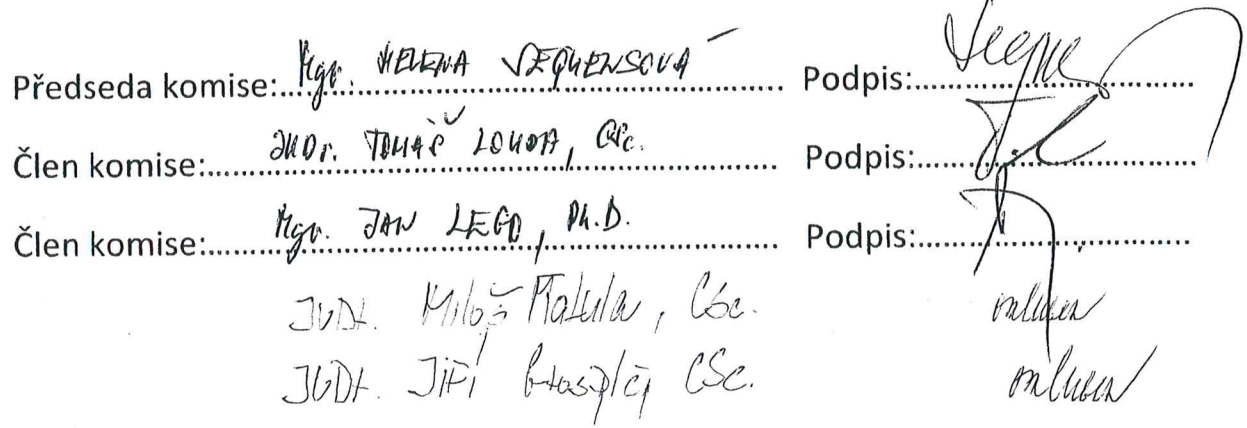 Předseda komise: Mgr. HELENA SEQUENSOVÁ Podpis:
Člen komise: JUDr. TOMÁŠ LOUDA, CSc. Podpis:
Člen komise: Mgr. JAN LEGO, Ph.D. Podpis:
JUDr. Miloš Matula, CSc. omluven
JUDr. Jiří CSc. omluven